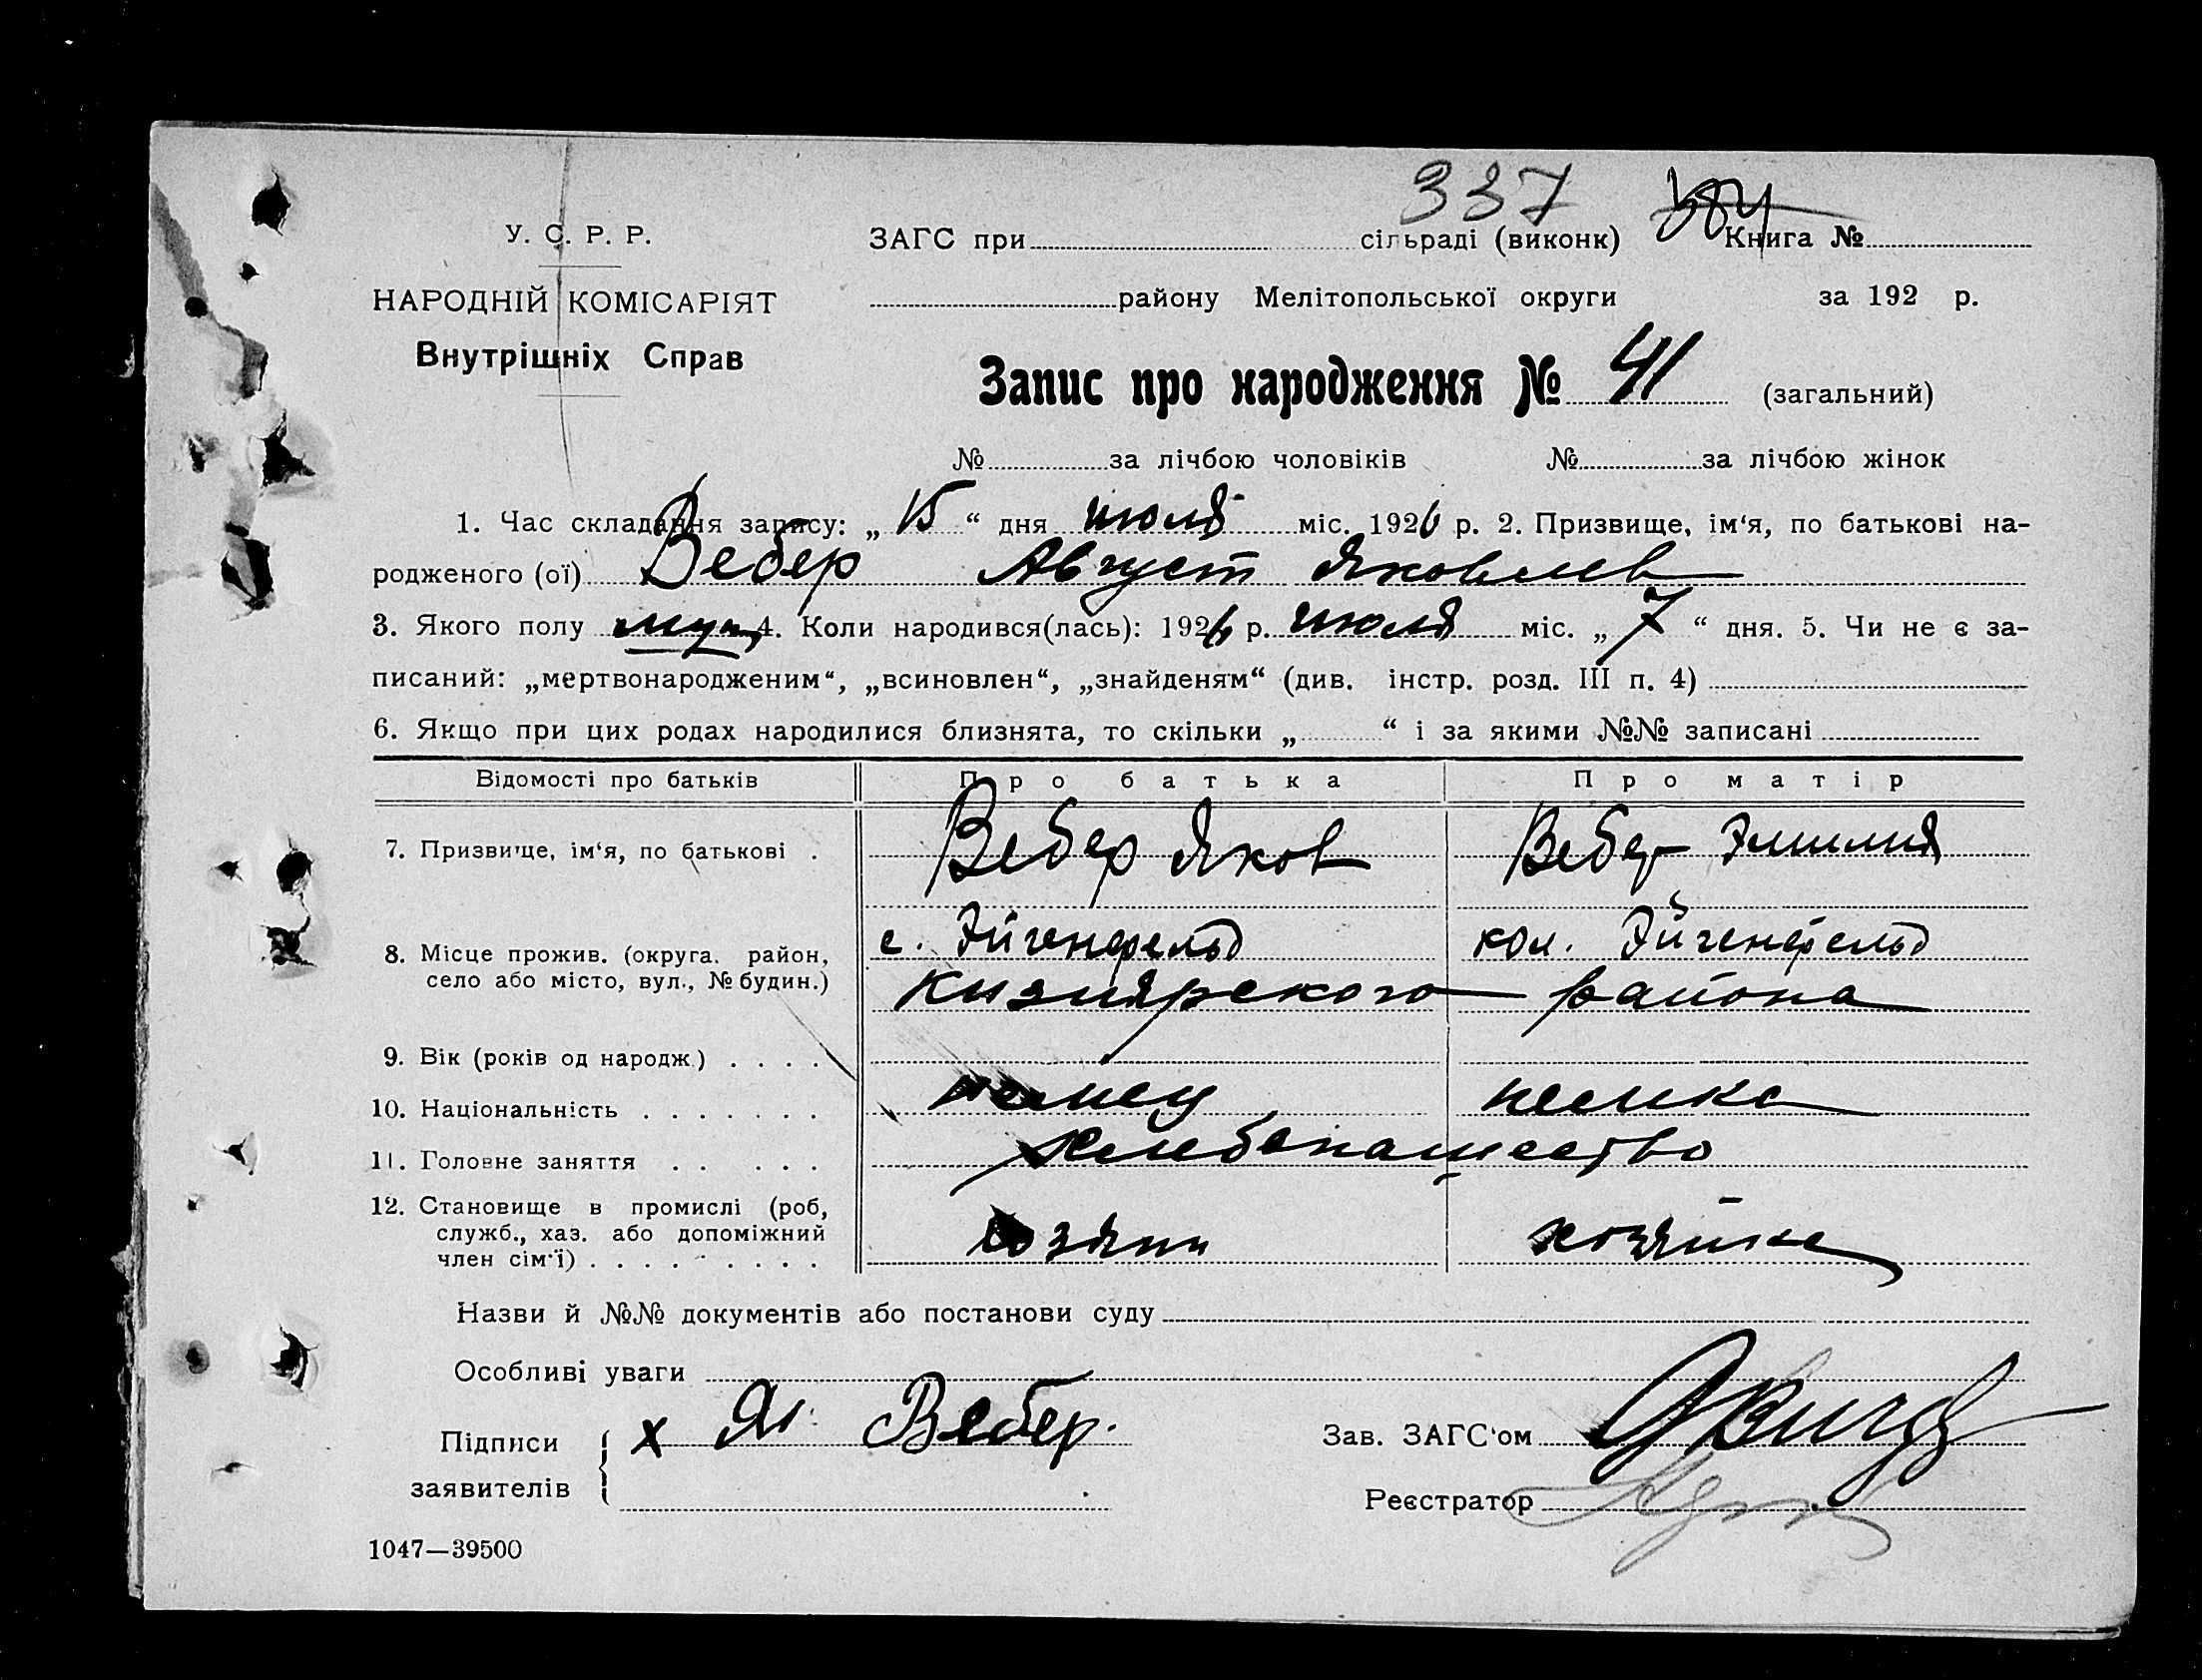 337 384
У. С. Р. Р.
ЗАГС при сільраді (виконк) Книга №
НАРОДНІЙ КОМІСАРІЯТ
району Мелітопольської округи за 192 р.
Внутрішніх Справ
Запис про народження № 41 (загальний)
№ за лічбою чоловіків № за лічбою жінок
1. Час складання запису: „ 15 “ дня июля міс. 1926 р. 2. Призвище, ім‘я, по батькові на-
родженого (ої) Вебер Август Яковлев
3. Якого полу муж 4. Коли народився(лась): 1926 р. июля міс. „ 7 “ дня. 5. Чи не є за-
писаний: „мертвонародженим“, „всиновлен“, „знайденям“ (див. інстр. розд. III п. 4)
6. Якщо при цих родах народилися близнята, то скільки „ “ і за якими №№ записані
Відомості про батьків Про батька Про матір
7. Призвище, ім‘я, по батькові . Вебер Яков Вебер Эмилия
8. Місце прожив. (округа. район, с. Эйгенфельд кол. Эйгенфельд
село або місто, вул., № будин.) Кизиярского района
9. Вік (років од народж.) . . . .
10. Національність . . . . . . . немец немка
11. Головне заняття . . . . . хлебопашество
12. Становище в промислі (роб,
служб., хаз. або допоміжний хозяин хозяйка
член сім‘ї) . . . . . . . . .
Назви й №№ документів або постанови суду
Особливі уваги
Підписи х Як Вебер. Зав. ЗАГС‘ом
заявителів Реєстратор
1047—39500